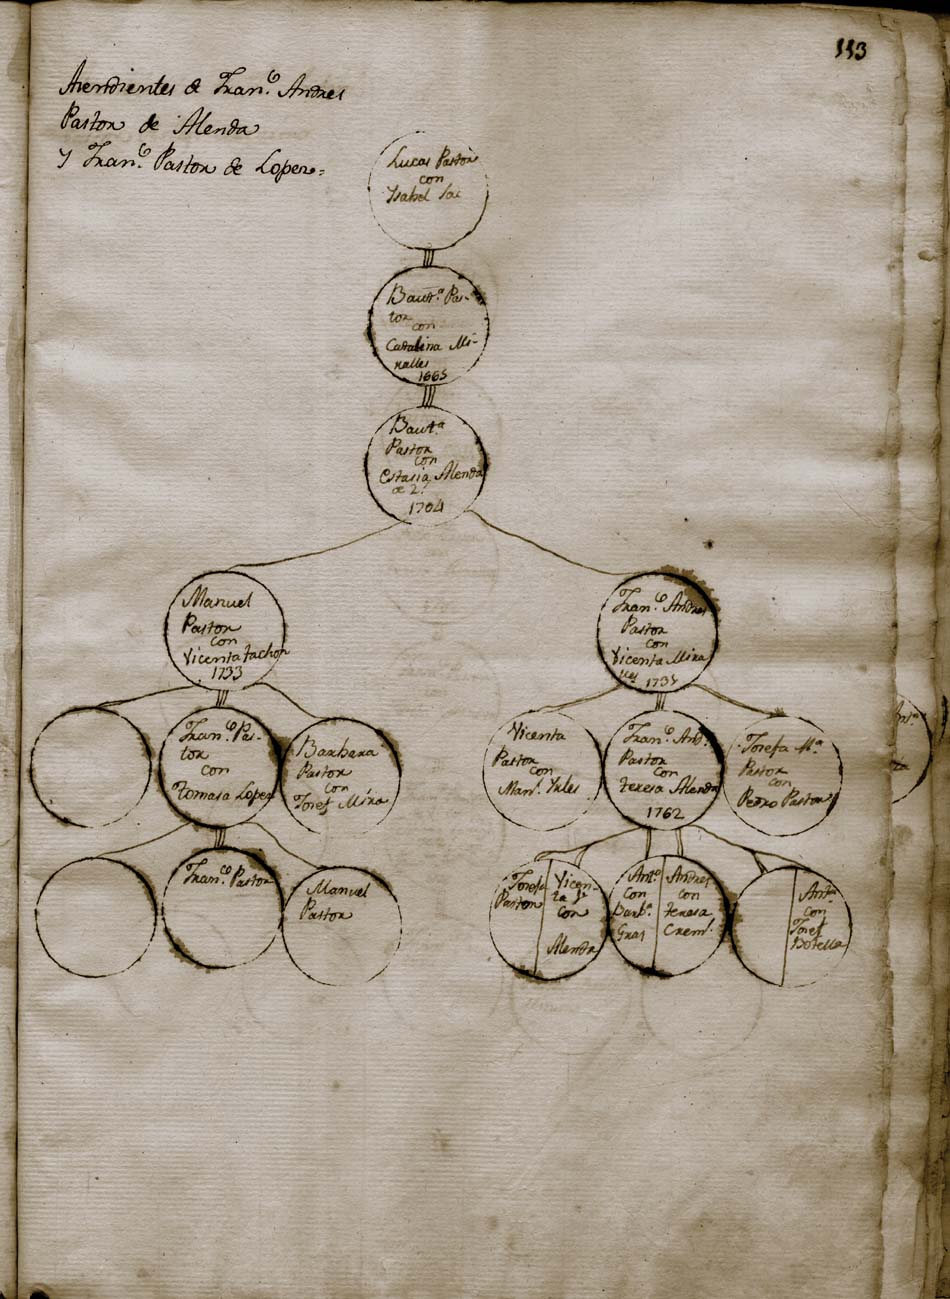 113
Asendientes de Fran.co Andres
Pastor de Alenda
Y Fran.co Pastor de Lopez=
Lucas Pastor
con
Ysabel
Baut.a Pas-
tor
con
Catalina Mi-
ralles
1665
Baut.a
Pastor
con
Estasia Alenda
de 2.
1704
Manuel
Pastor
con
Vicenta
1733
Fran.co Andres
Pastor
con
Vicenta Mira
lles 1735
Fran.co Pas-
tor
con
Tomasa Lopez
Barbara
Pastor
con
Josef Mira
Vicenta
Pastor
con
Man.l
Fran.co And.s
Pastor
con
Teresa Alenda
1762
Josefa M.a
Pastor
con
Pedro Pastor
Fran.co Pastor
Manuel
Pastor
Josefa
Pastor
Vicen-
ta
con
Alenda
Ant.o
con
Barb.a
Gras
Andres
con
Teresa
Crem.s
Ant.a
con
Josef
Botella